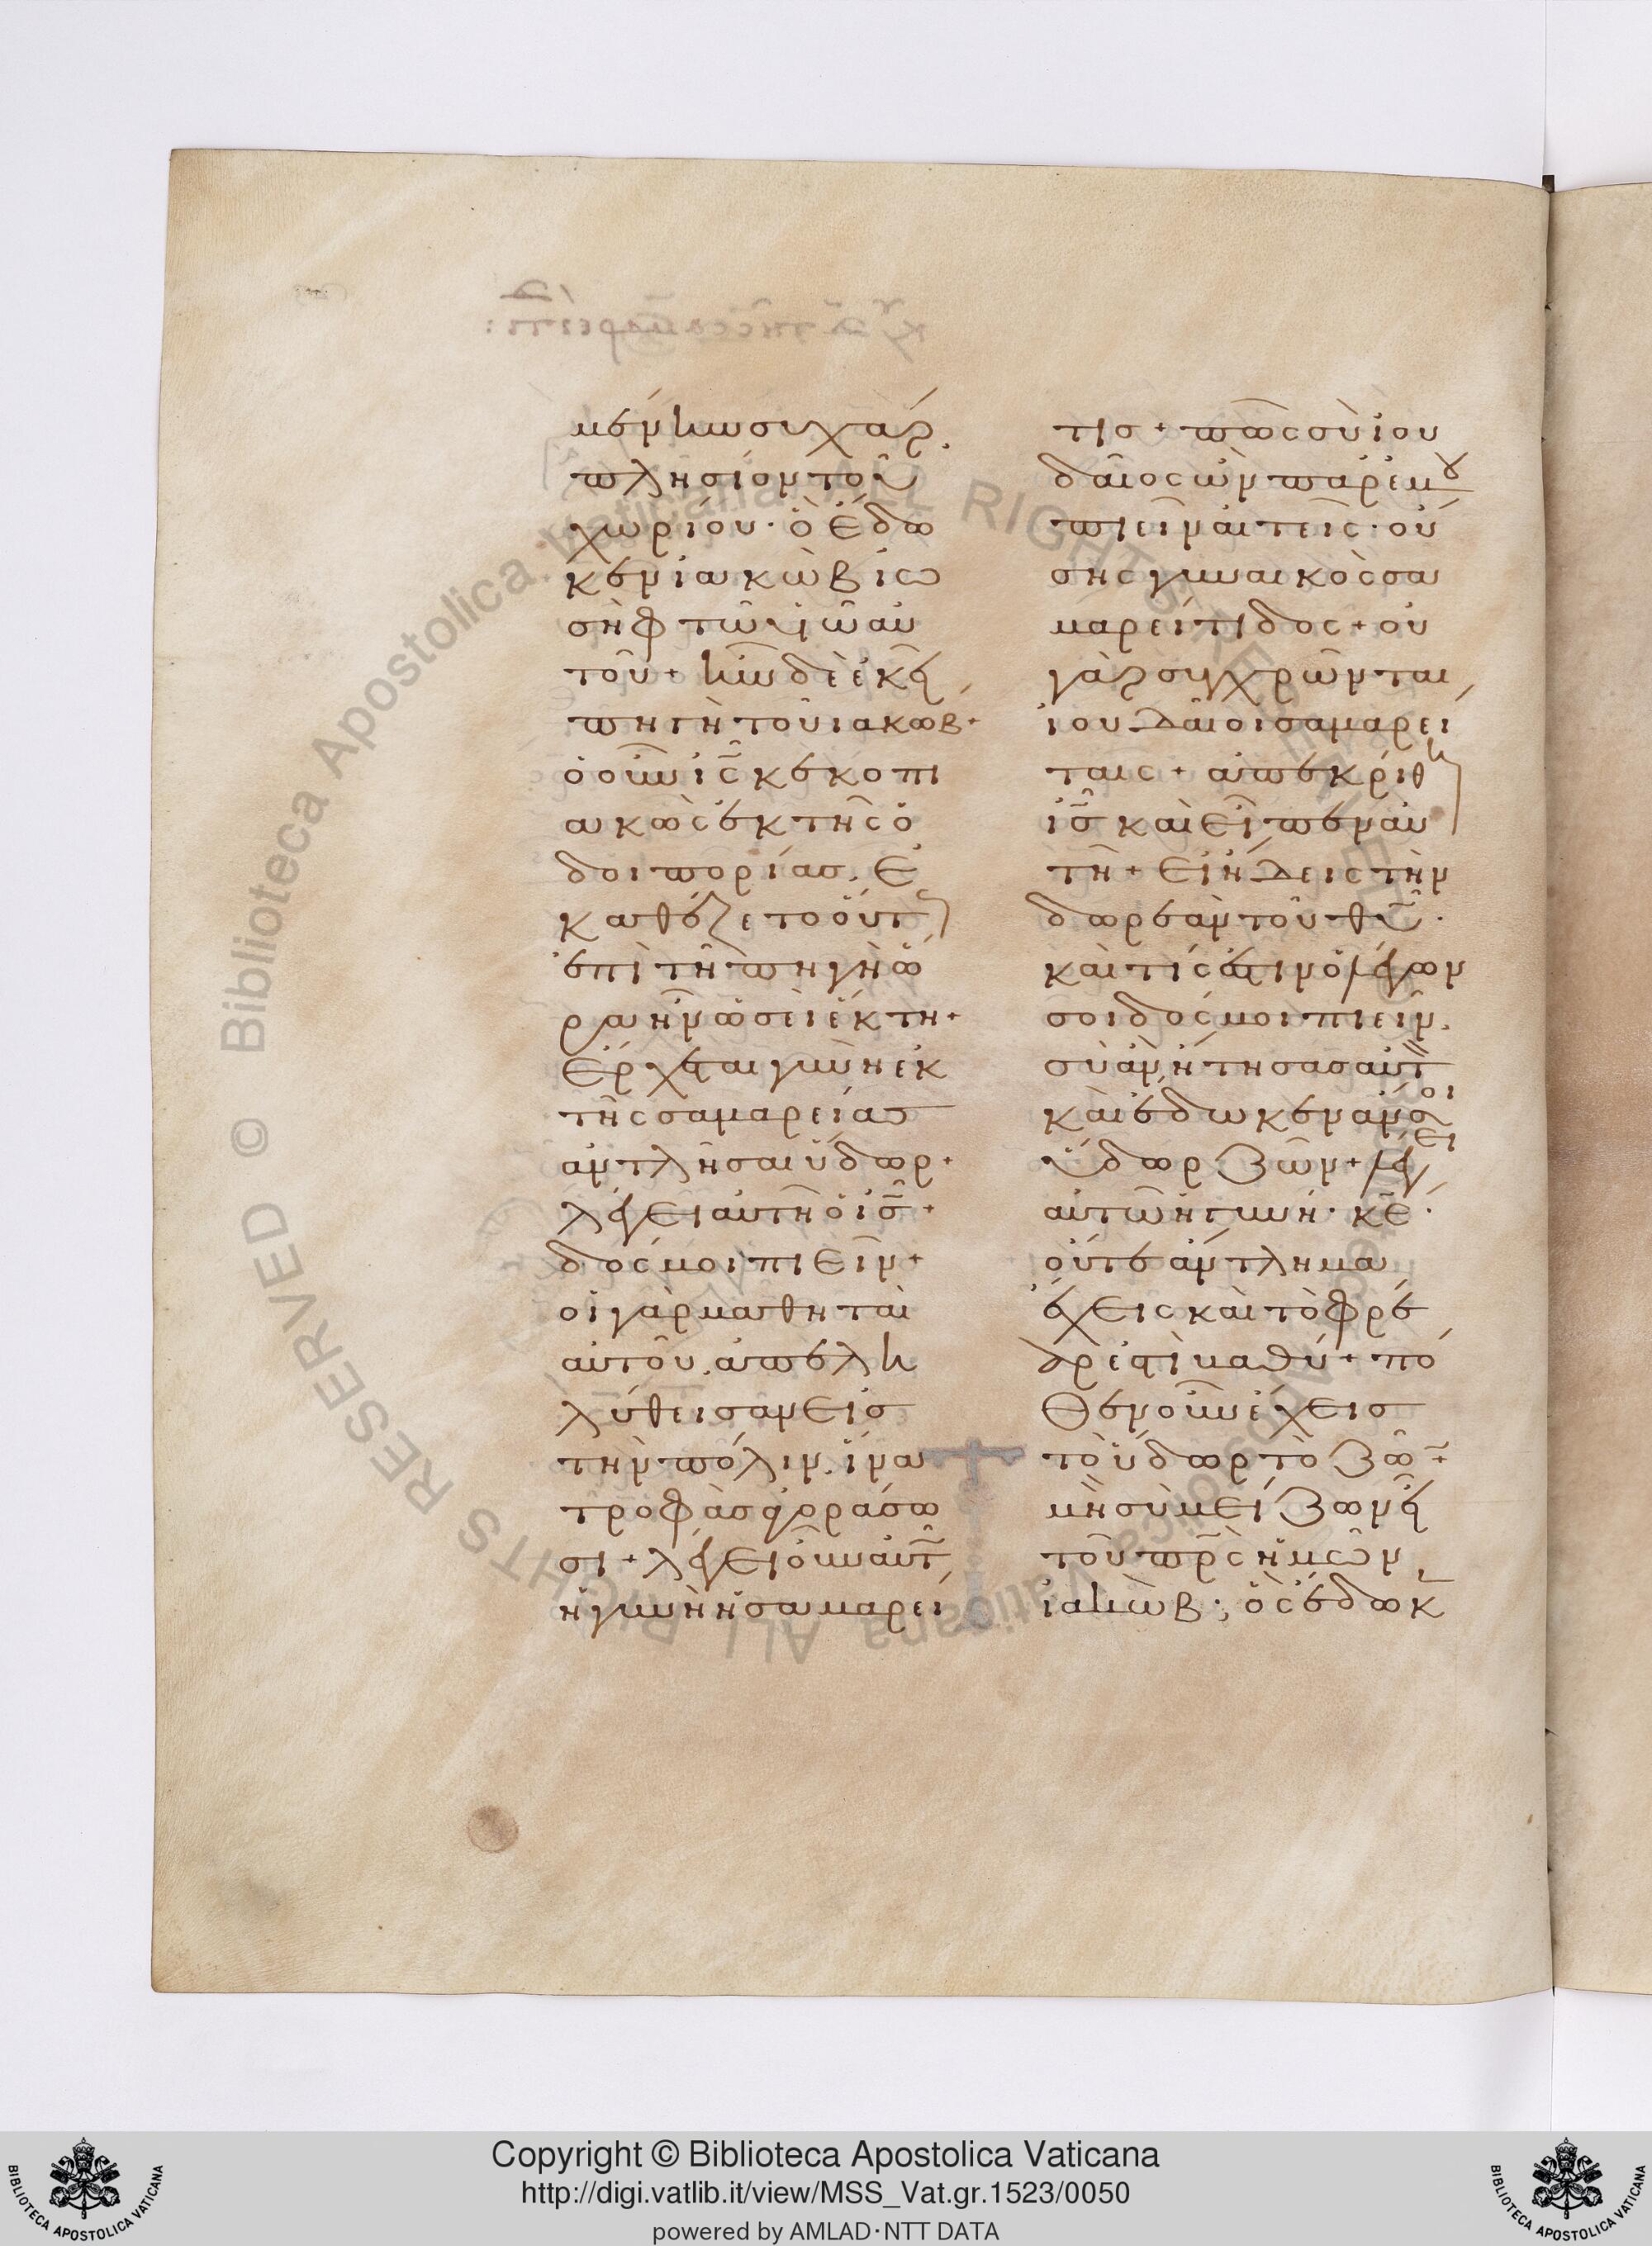 μένην συχὰρ.
πλησίον τοῦ
χωρίου· ὃ ἔδω
κεν ἰακὼβ ἰω
σὴφ τῶ υἱῶ αὐ
τοῦ + ἦν δὲ ἐκεῖ
πηγὴ τοῦ ἰακώβ +
ὁ οὖν ἰς̅ κεκοπι
ακὼς ἐκ τῆς ὁ
δοιπορίασ. ἐ
καθέζετο οὕτως
ἐπὶ τῆ πηγῆ ὥ
ρα ἦν ὡσεὶ ἕκτη +
Ἔρχεται γυνὴ ἐκ
τῆς σαμαρείασ
ἀντλῆσαι ὕδωρ +
λέγει αὐτῆ ὁ ἰσ̅ +
δός μοι πιεῖν +
οἱ γὰρ μαθηταὶ
αὐτοῦ. ἀπελη
λύθεισαν εἰσ
τὴν πόλιν. ἵνα
τροφὰσ ἀγοράσω
σι + λέγει οὖν αὐτῶ
ἡ γυνὴ ἡ σαμαρεί
τισ + πῶς σὺ ἰου
δαῖος ὢν παρ' ἐμοῦ
πιεῖν αἰτεῖς· οὔ
σης γυναικὸς σα
μαρείτιδος + οὐ
γὰρ συγχρῶνται
ἰουδαῖοι σαμαρεί
ταις + ἀπεκρίθη
ἰσ̅ καὶ εἶπεν αὐ
τῆ + εἰ ἤδεις τὴν
δωρεὰν τοῦ θυ̅·
καὶ τίς ἐστιν ὁ λέγων
σοι δός μοι πιεῖν.
σὺ ἂν ἤτησας αὐτ
καὶ ἔδωκεν ἄν σοι
ὕδωρ ζῶν + λέγει
αὐτῶ ἡ γυνή· κε̅·
οὔτε ἄντλημα
ἔχεις καὶ τὸ φρέ
αρ ἐστὶ βαθύ + πό
θεν οὖν ἔχεισ
τὸ ὕδωρ τὸ ζῶν +
μὴ σὺ μείζων εἶ
τοῦ πρ̅ς ἡμῶν
ἰακώβ·, ὃς ἔδωκ
Copyright © Biblioteca Apostolica Vaticana
http://digi.vatlib.it/view/MSS_Vat.gr.1523/0050
powered by AMLAD·NTT DATA